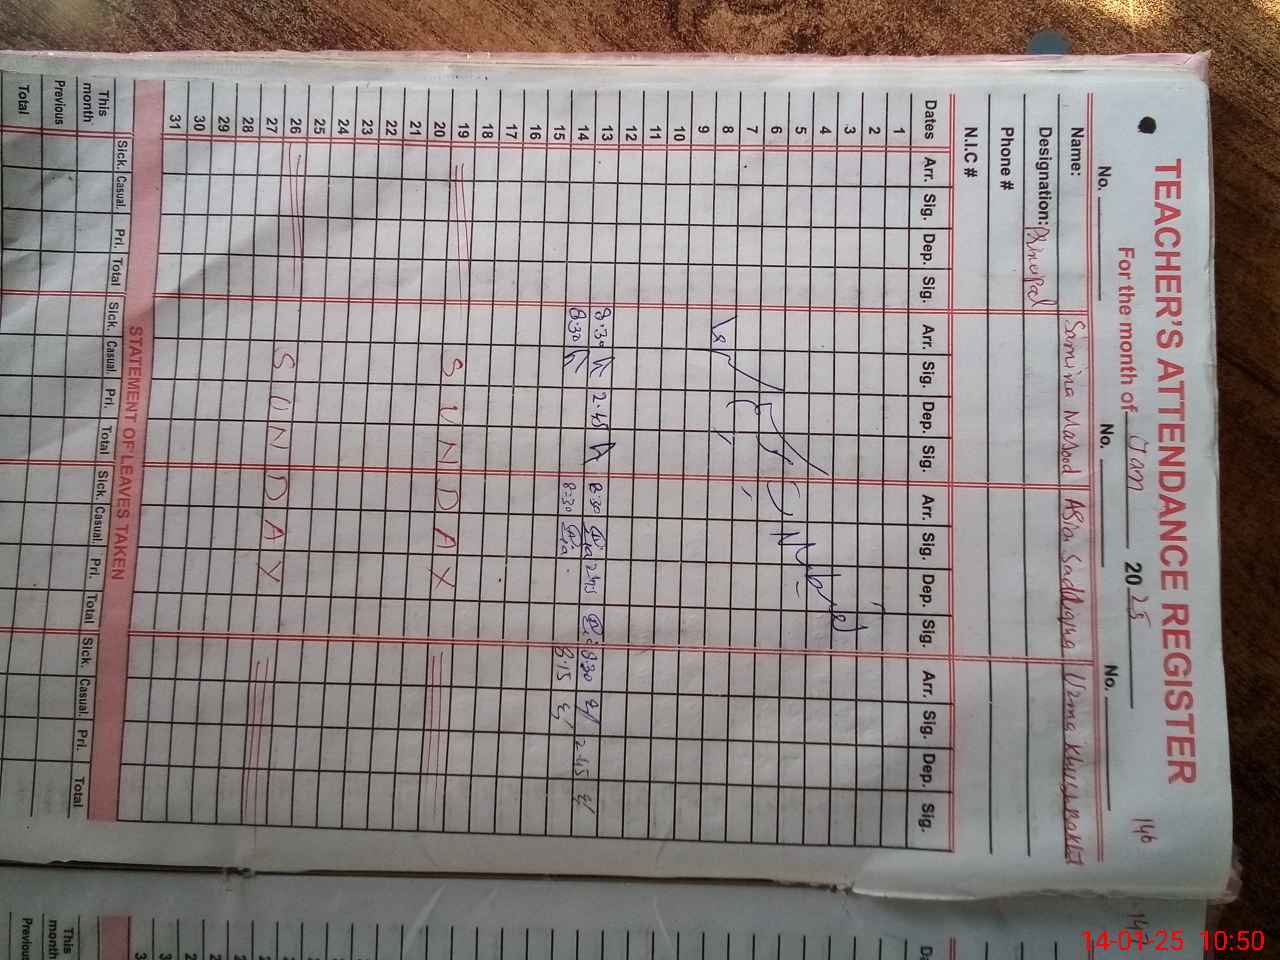 TEACHER'S ATTENDANCE REGISTER
146
For the month of Jan 2025
No. No. No.
Name: Samina Masood Asia Saddiqua Uzma Khushbakht
Designation:
Phone #
N.I.C #
Dates Arr. Sig. Dep. Sig. Arr. Sig. Dep. Sig. Arr. Sig. Dep. Sig. Arr. Sig. Dep. Sig.
1
2
3
4
5
6
7
8
9
10
11
12
13 8:30 2:45 8:30 2:45 8:30 2:45
14 8:30 8:30 8:15
15
16
17
18
19 SUNDAY
20
21
22
23
24
25
26 SUNDAY
27
28
29
30
31
STATEMENT OF LEAVES TAKEN
This month Sick. Casual. Pri. Total Sick. Casual. Pri. Total Sick. Casual. Pri. Total Sick. Casual. Pri. Total
Previous
Total
This month
Previous
14-01-25 10:50